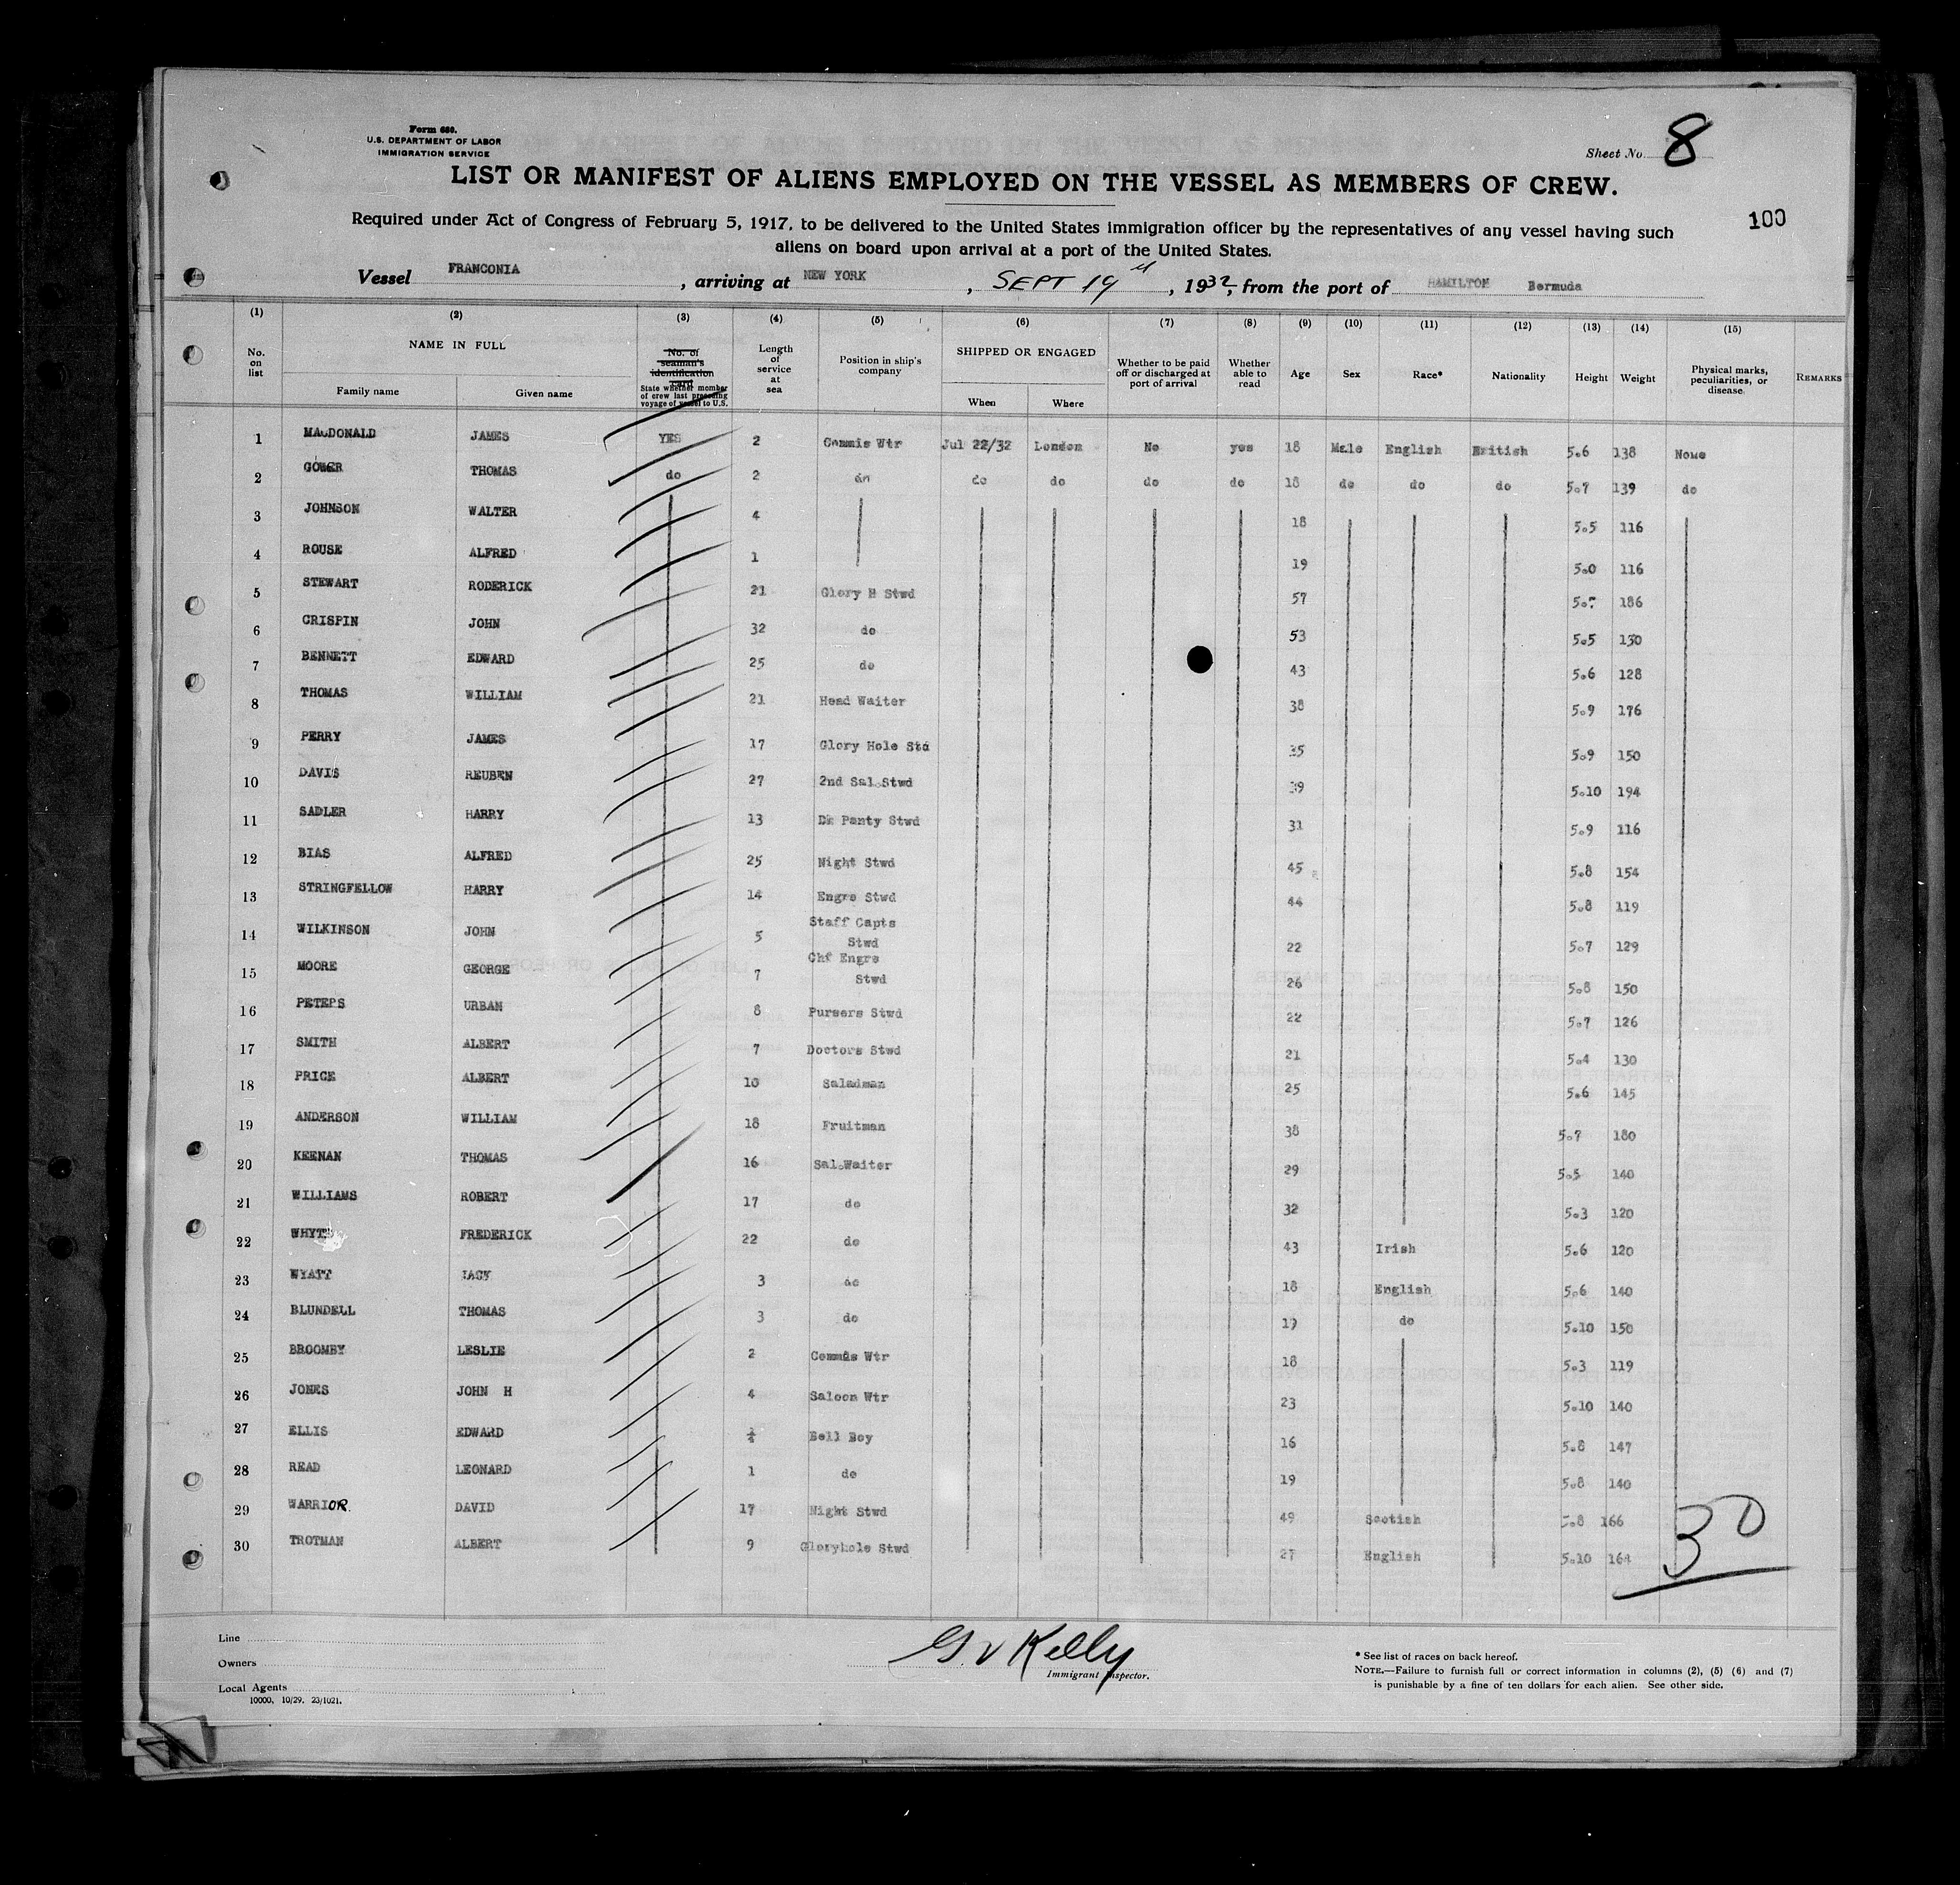 Form 680.
U.S. DEPARTMENT OF LABOR
IMMIGRATION SERVICE
Sheet No. 8
LIST OR MANIFEST OF ALIENS EMPLOYED ON THE VESSEL AS MEMBERS OF CREW.
100
Required under Act of Congress of February 5, 1917, to be delivered to the United States immigration officer by the representatives of any vessel having such
aliens on board upon arrival at a port of the United States.
Vessel FRANCONIA, arriving at NEW YORK, SEPT 19, 1932, from the port of HAMILTON Bermuda
(1) (2) (3) (4) (5) (6) (7) (8) (9) (10) (11) (12) (13) (14) (15)
No. on list
NAME IN FULL
Family name Given name
No. of seaman's identification card
State whether member of crew last preceding voyage of vessel to U.S.
Length of service at sea
Position in ship's company
SHIPPED OR ENGAGED
When Where
Whether to be paid off or discharged at port of arrival
Whether able to read
Age Sex Race* Nationality Height Weight
Physical marks, peculiarities, or disease
REMARKS
1 MACDONALD JAMES YES 2 Commis Wtr Jul 22/32 London No yes 18 Male English British 5.6 138 None
2 GOWER THOMAS do 2 do do do do do 18 do do do 5.7 139 do
3 JOHNSON WALTER 4 18 5.5 116
4 ROUSE ALFRED 1 19 5.0 116
5 STEWART RODERICK 21 Glory H Stwd 57 5.7 186
6 CRISPIN JOHN 32 do 53 5.5 130
7 BENNETT EDWARD 25 do 43 5.6 128
8 THOMAS WILLIAM 21 Head Waiter 38 5.9 176
9 PERRY JAMES 17 Glory Hole Std 35 5.9 150
10 DAVIS REUBEN 27 2nd Sal.Stwd 39 5.10 194
11 SADLER HARRY 13 Dk Panty Stwd 31 5.9 116
12 BIAS ALFRED 25 Night Stwd 45 5.8 154
13 STRINGFELLOW HARRY 14 Engrs Stwd 44 5.8 119
14 WILKINSON JOHN 5 Staff Capts Stwd 22 5.7 129
15 MOORE GEORGE 7 Chf Engrs Stwd 26 5.8 150
16 PETERS URBAN 8 Pursers Stwd 22 5.7 126
17 SMITH ALBERT 7 Doctors Stwd 21 5.4 130
18 PRICE ALBERT 10 Saladman 25 5.6 145
19 ANDERSON WILLIAM 18 Fruitman 38 5.7 180
20 KEENAN THOMAS 16 Sal.Waiter 29 5.5 140
21 WILLIAMS ROBERT 17 do 32 5.3 120
22 WHYTE FREDERICK 22 do 43 Irish 5.6 120
23 WYATT JACK 3 do 18 English 5.6 140
24 BLUNDELL THOMAS 3 do 19 do 5.10 150
25 BROOMBY LESLIE 2 Commis Wtr 18 5.3 119
26 JONES JOHN H 4 Saloon Wtr 23 5.10 140
27 ELLIS EDWARD Bell Boy 16 5.8 147
28 READ LEONARD 1 do 19 5.8 140
29 WARRIOR DAVID 17 Night Stwd 49 Scotish 5.8 166
30 TROTMAN ALBERT 9 Gloryhole Stwd 27 English 5.10 164
30
Line
Owners
Local Agents
10000, 10/29, 23/1021.
G V Kelly
Immigrant Inspector.
* See list of races on back hereof.
NOTE.—Failure to furnish full or correct information in columns (2), (5) (6) and (7)
is punishable by a fine of ten dollars for each alien. See other side.